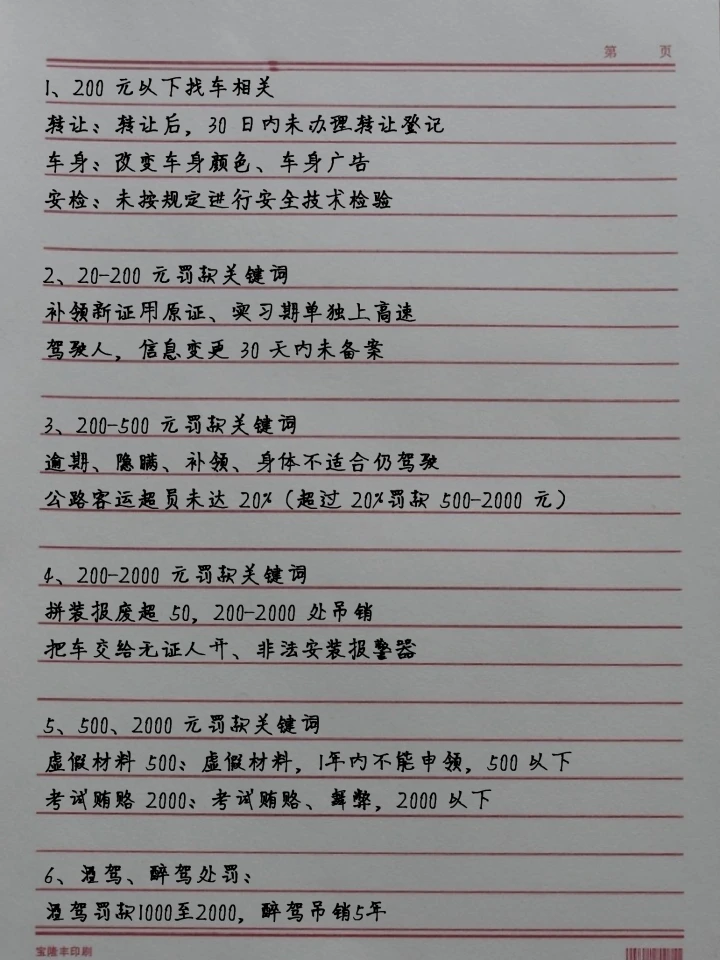 第 页
1、200 元以下找车相关
转让：转让后，30 日内未办理转让登记
车身：改变车身颜色、车身广告
安检：未按规定进行安全技术检验
2、20-200 元罚款关键词
补领新证用原证、实习期单独上高速
驾驶人，信息变更 30 天内未备案
3、200-500 元罚款关键词
逾期、隐瞒、补领、身体不适合仍驾驶
公路客运超员未达 20%（超过 20%罚款 500-2000 元）
4、200-2000 元罚款关键词
拼装报废超 50，200-2000 处吊销
把车交给无证人开、非法安装报警器
5、500、2000 元罚款关键词
虚假材料 500：虚假材料，1年内不能申领，500 以下
考试贿赂 2000：考试贿赂、舞弊，2000 以下
6、酒驾、醉驾处罚：
酒驾罚款1000至2000，醉驾吊销5年
宝隆丰印刷